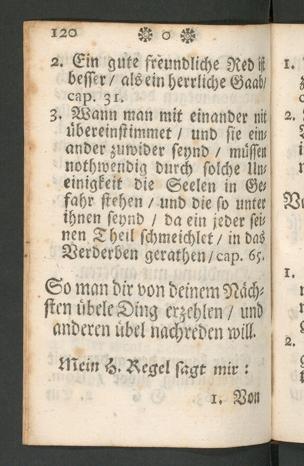 120 ❊ o ❊
2. Ein gute freundliche Red ist
besser / als ein herrliche Gaab/
cap. 31.
3. Wann man mit einander nit
übereinstimmet / und sie ein-
ander zuwider seynd / müssen
nothwendig durch solche Un-
einigkeit die Seelen in Ge-
fahr stehen / und die so unter
ihnen seynd / da ein jeder sei-
nen Theil schmeichlet / in das
Verderben gerathen / cap. 65.
So man dir von deinem Näch-
sten übele Ding erzehlen / und
anderen übel nachreden will.
Mein H. Regel sagt mir :
1. Von